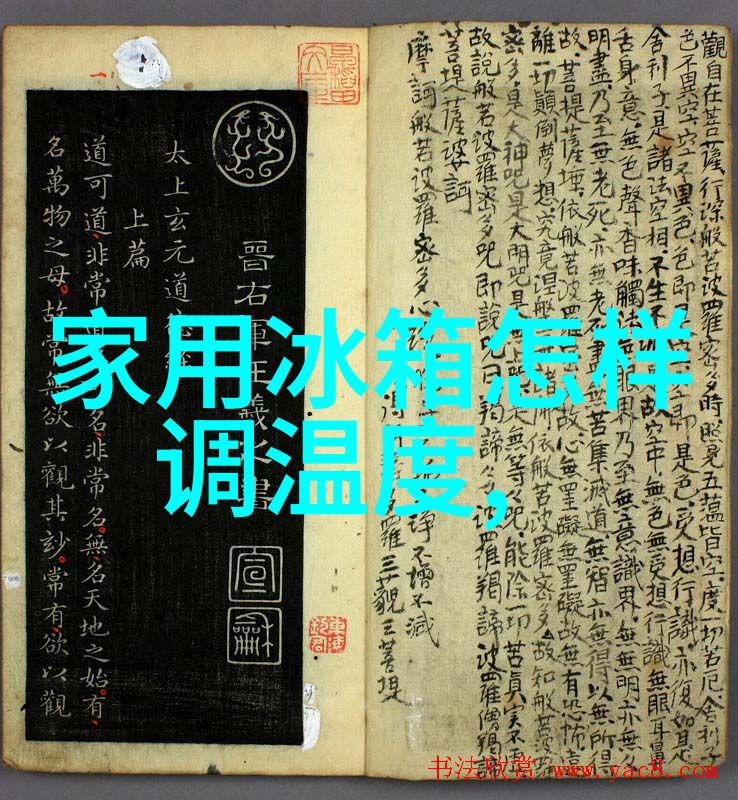 家用冰箱怎样
调温度,
觀自在菩薩行深般若波羅密多時照見五蘊皆空度一切苦厄舍利子
色不異空空不異色色即是色受想行識亦復如是
舍利子是諸法空相不生不故空中無色無受想行識無眼耳鼻
舌身意無色聲香味觸法無眼界乃至無意識界無無明亦無
明盡乃至無老死亦無老死盡無苦集滅道無智亦無得以無所得
故菩提薩埵依般若波羅密多故心無罣礙無罣礙故無有恐怖遠
離一切顛倒夢想究竟涅槃諸佛依般若波羅密多故知般若波
密多是大神咒是大明咒是無上咒是無等々咒能除一切苦真實不
故說般若波羅密多咒即說咒曰揭諦々波羅揭諦波羅僧揭諦
菩提薩婆訶
摩訶般若波羅密多心
淨不增不減
羅三藐三菩提
晉右軍王羲之書
宣
龢
太上玄元道德經
上篇
道可道非常名非常名無名天地之始有
名萬物之母故常無欲以觀其玅常有欲以觀
书法欣赏 www.yac8.com